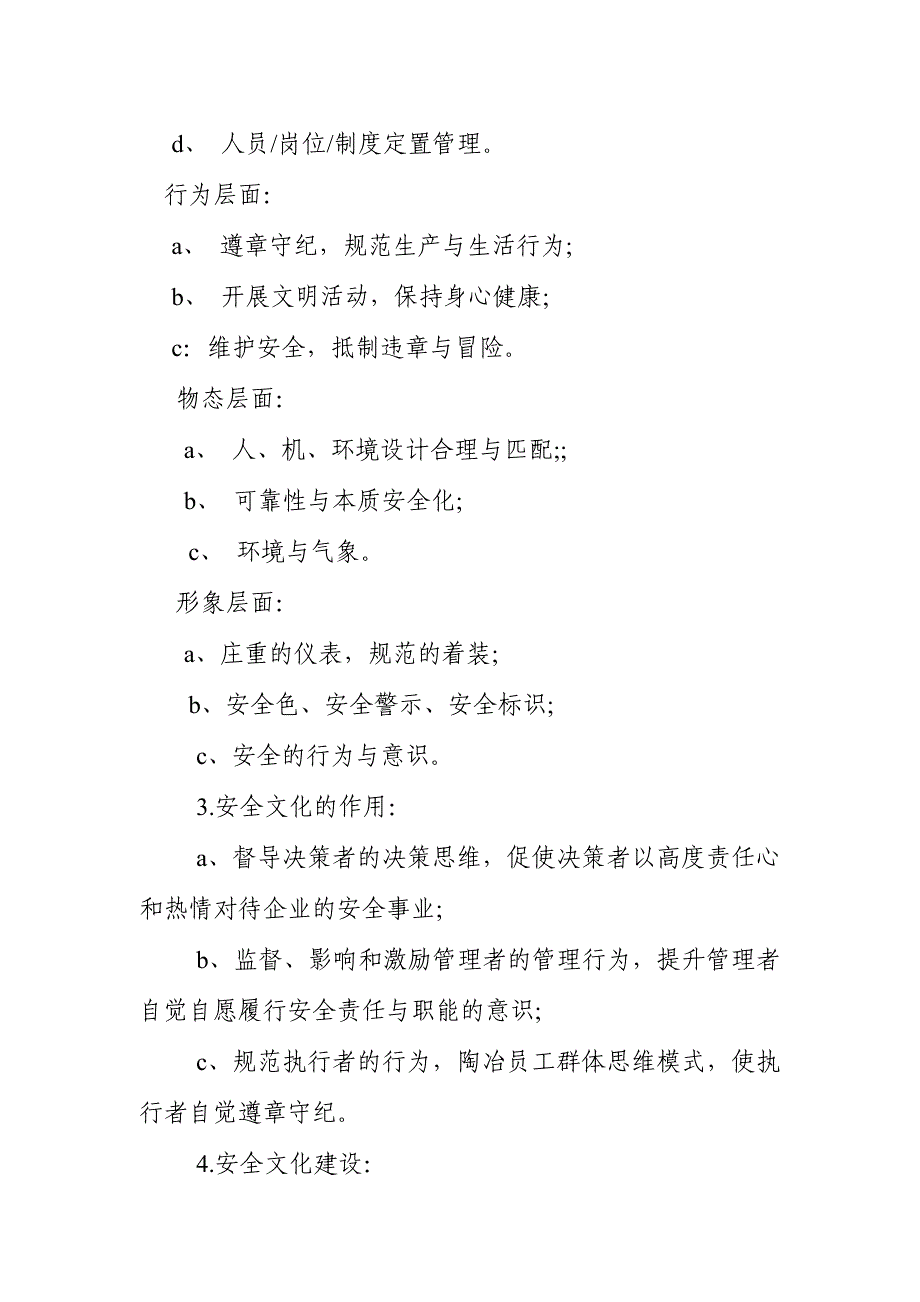 d、 人员/岗位/制度定置管理。
行为层面:
a、 遵章守纪，规范生产与生活行为;
b、 开展文明活动，保持身心健康;
c: 维护安全，抵制违章与冒险。
物态层面:
a、 人、机、环境设计合理与匹配;;
b、 可靠性与本质安全化;
c、 环境与气象。
形象层面:
a、庄重的仪表，规范的着装;
b、安全色、安全警示、安全标识;
c、安全的行为与意识。
3.安全文化的作用:
a、督导决策者的决策思维，促使决策者以高度责任心
和热情对待企业的安全事业;
b、监督、影响和激励管理者的管理行为，提升管理者
自觉自愿履行安全责任与职能的意识;
c、规范执行者的行为，陶冶员工群体思维模式，使执
行者自觉遵章守纪。
4.安全文化建设: